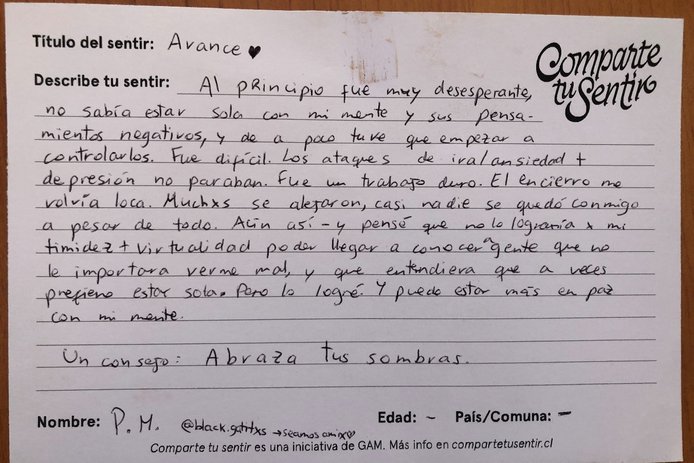 Título del sentir: Avance ♥
Comparte
tu Sentir
Describe tu sentir: Al principio fue muy desesperante,
no sabía estar sola con mi mente y sus pensa-
mientos negativos, y de a poco tuve que empezar a
controlarlos. Fue difícil. Los ataques de ira/ansiedad +
depresión no paraban. Fue un trabajo duro. El encierro me
volvía loca. Muchxs se alejaron, casi nadie se quedó conmigo
a pesar de todo. Aún así - y pensé que no lo lograría x mi
timidez + virtualidad poder llegar a conocer a gente que no
le importara verme mal, y que entendiera que a veces
prefiero estar sola. Pero lo logré. Y puedo estar más en paz
con mi mente.
Un consejo: Abraza tus sombras.
Nombre: P. M. → seamos amix♡ Edad: - País/Comuna: -
Comparte tu sentir es una iniciativa de GAM. Más info en compartetusentir.cl